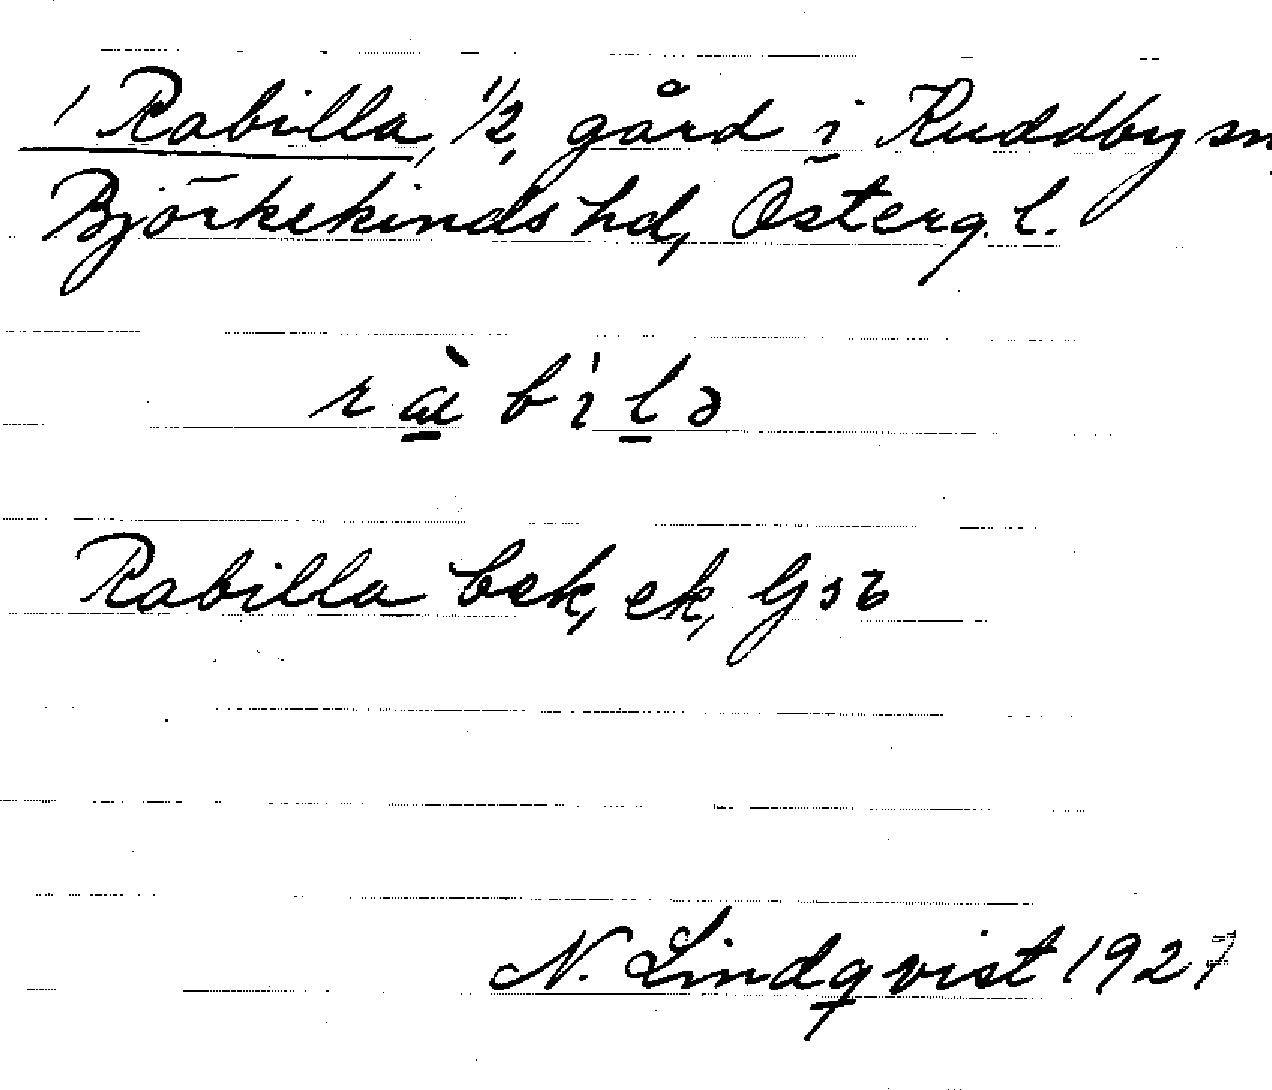 Rabilla, 1/2, gård i Ruddby sn,
Björkekinds hd, Österg. l.
Rabilla bek, ek,
N. Lindqvist 1927